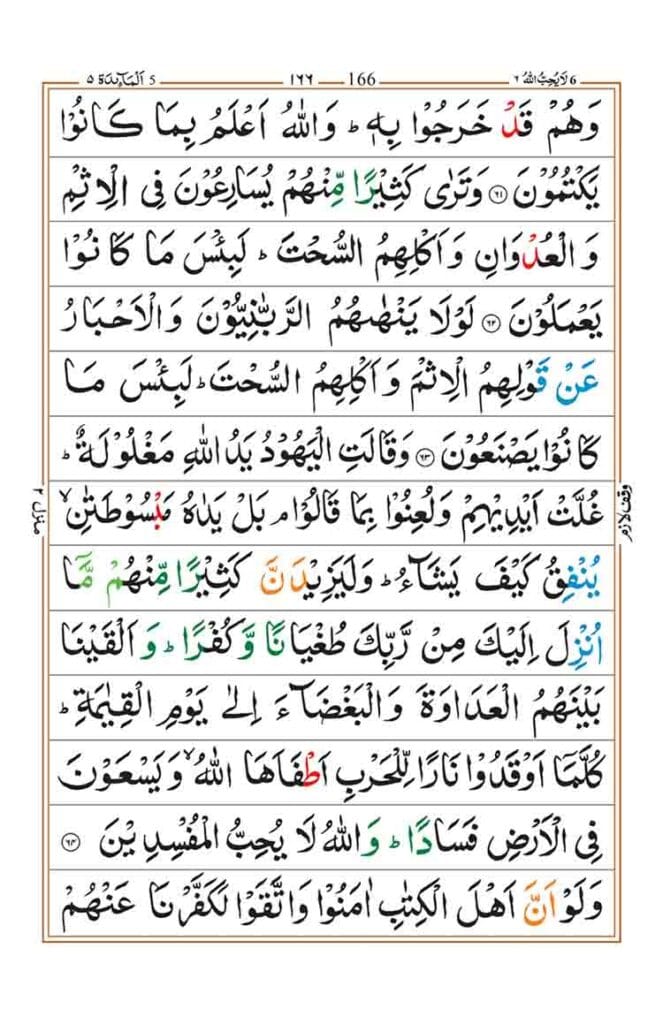 6 لَا يُحِبُّ اللّٰهُ ٦ 166 ١٦٦ 5 اَلْمَآئِدَة ٥
وَهُمْ قَدْ خَرَجُوْا بِهٖ ؕ وَاللّٰهُ اَعْلَمُ بِمَا كَانُوْا
يَكْتُمُوْنَ ۝۶۱ وَتَرٰى كَثِيْرًا مِّنْهُمْ يُسَارِعُوْنَ فِى الْاِثْمِ
وَالْعُدْوَانِ وَاَكْلِهِمُ السُّحْتَ ؕ لَبِئْسَ مَا كَانُوْا
يَعْمَلُوْنَ ۝۶۲ لَوْلَا يَنْهٰىهُمُ الرَّبّٰنِيُّوْنَ وَالْاَحْبَارُ
عَنْ قَوْلِهِمُ الْاِثْمَ وَاَكْلِهِمُ السُّحْتَ ؕ لَبِئْسَ مَا
كَانُوْا يَصْنَعُوْنَ ۝۶۳ وَقَالَتِ الْيَهُوْدُ يَدُ اللّٰهِ مَغْلُوْلَةٌ ؕ
غُلَّتْ اَيْدِيْهِمْ وَلُعِنُوْا بِمَا قَالُوْا ۘ بَلْ يَدٰهُ مَبْسُوْطَتٰنِ ۙ
وقف لازم
منزل ٢
يُنْفِقُ كَيْفَ يَشَآءُ ؕ وَلَيَزِيْدَنَّ كَثِيْرًا مِّنْهُمْ مَّاۤ
اُنْزِلَ اِلَيْكَ مِنْ رَّبِّكَ طُغْيَانًا وَّكُفْرًا ؕ وَاَلْقَيْنَا
بَيْنَهُمُ الْعَدَاوَةَ وَالْبَغْضَآءَ اِلٰى يَوْمِ الْقِيٰمَةِ ؕ
كُلَّمَاۤ اَوْقَدُوْا نَارًا لِّلْحَرْبِ اَطْفَاَهَا اللّٰهُ ۙ وَيَسْعَوْنَ
فِى الْاَرْضِ فَسَادًا ؕ وَاللّٰهُ لَا يُحِبُّ الْمُفْسِدِيْنَ ۝۶۴
وَلَوْ اَنَّ اَهْلَ الْكِتٰبِ اٰمَنُوْا وَاتَّقَوْا لَكَفَّرْنَا عَنْهُمْ